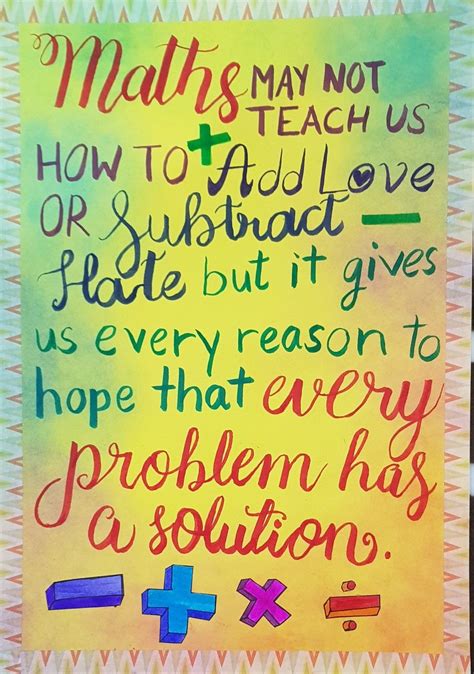 Maths MAY NOT
TEACH US
HOW TO + Add Love
OR Subtract —
Hate but it gives
us every reason to
hope that every
problem has
a solution.
− + × ÷